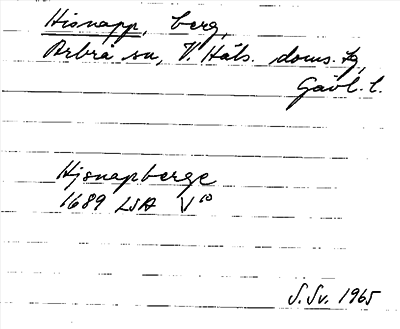 Hisnapp, berg,
Arbrå sn, V. Häls. doms. tg,
Gävl. l.
Hjsnapberge
1689 LSA V¹⁰
S. Sv. 1965